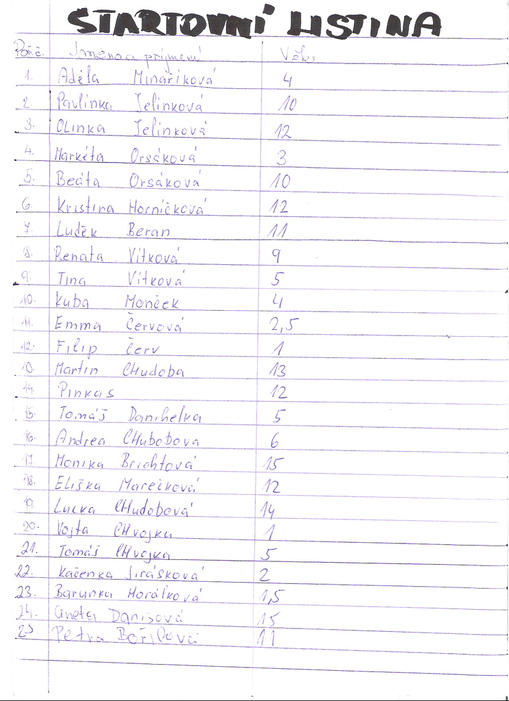 STARTOVNÍ LISTINA
Poř.č. Jméno a příjmení Věk:
1. Adéla Minaříková 4
2. Pavlínka Jelínková 10
3. Olinka Jelínková 12
4. Markéta Orsáková 3
5. Beáta Orsáková 10
6. Kristína Horníčková 12
7. Luděk Beran 11
8. Renata Vítková 9
9. Tina Vítková 5
10. Kuba Monček 4
11. Emma Červová 2,5
12. Filip Červ 1
13. Martin CHudoba 13
14. Pinkas 12
15. Tomáš Danihelka 5
16. Andrea CHubobova 6
17. Monika Brichtová 15
18. Eliška Marečková 12
19. Lucka CHudobová 14
20. Vojta CHvojka 1
21. Tomáš CHvojka 5
22. Kačenka Jirásková 2
23. Barunka Horálková 1,5
24. Aneta Danisová 15
25 Petra 11